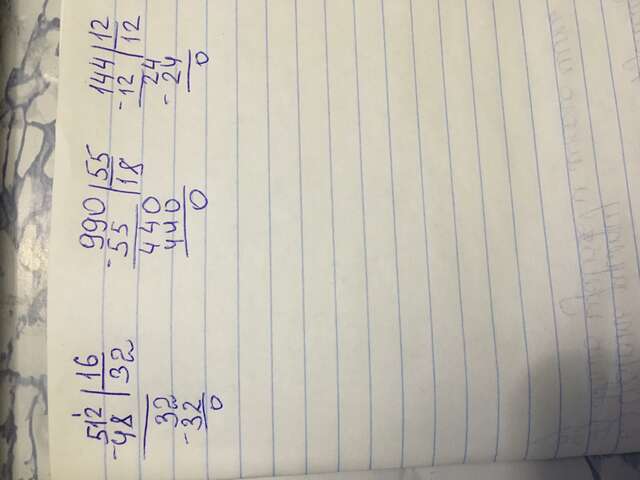 512 | 16
-48 | 32
32
-32
0
990 | 55
-55 | 18
440
440
0
144 | 12
-12 | 12
24
-24
0